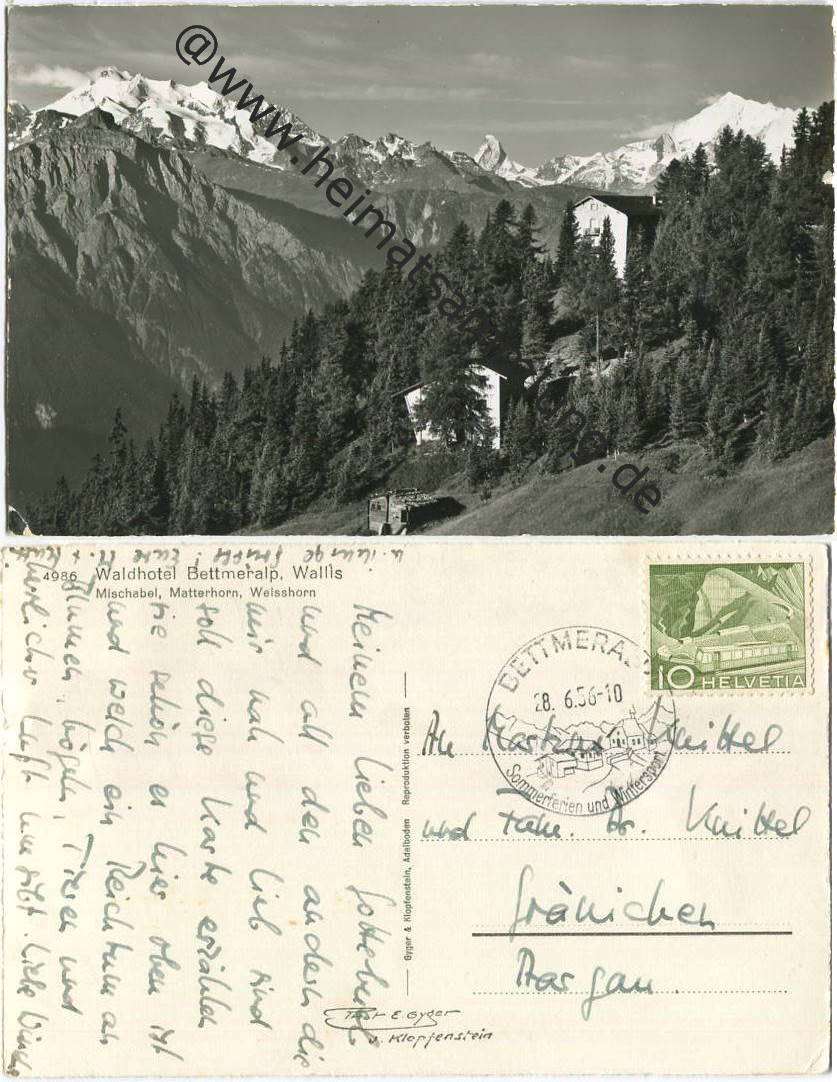 @www.heimatsammlung.de
4986 Waldhotel Bettmeralp, Wallis
Mischabel, Matterhorn, Weisshorn
Meinem lieben Gottebub
und all den andern die
mir nah und lieb sind
soll diese Karte erzählen
wie schön es hier oben ist
und welch ein Reichtum an
Blumen, Vögeln, Tieren und
herrlicher Luft uns gibt. Liebe
Gyger & Klopfenstein, Adelboden Reproduktion verboten
Phot E. Gyger
J. Klopfenstein
10 HELVETIA
BETTMERALP
28. 6.56-10
Sommerferien und Wintersport
An Knittel
und Fam. Dr. Knittel
Gränichen
Aargau.